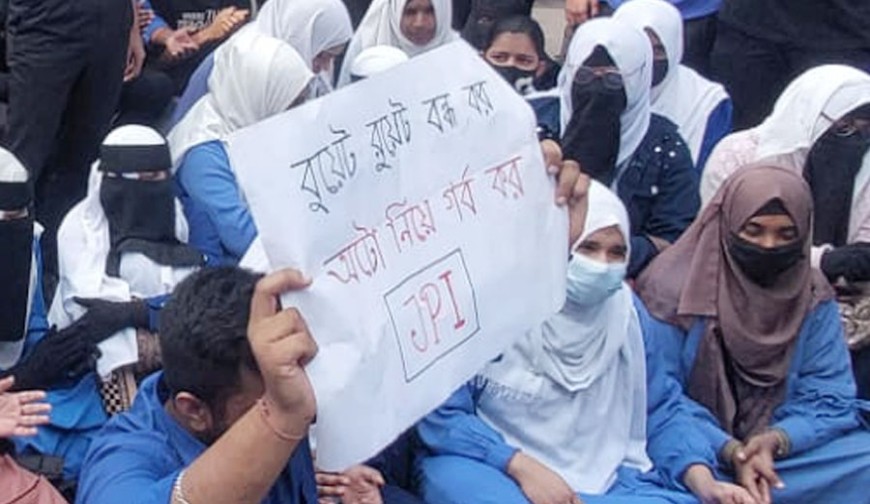 বুয়েট বুয়েট বন্ধ কর
অটো নিয়ে গর্ব কর
JPI